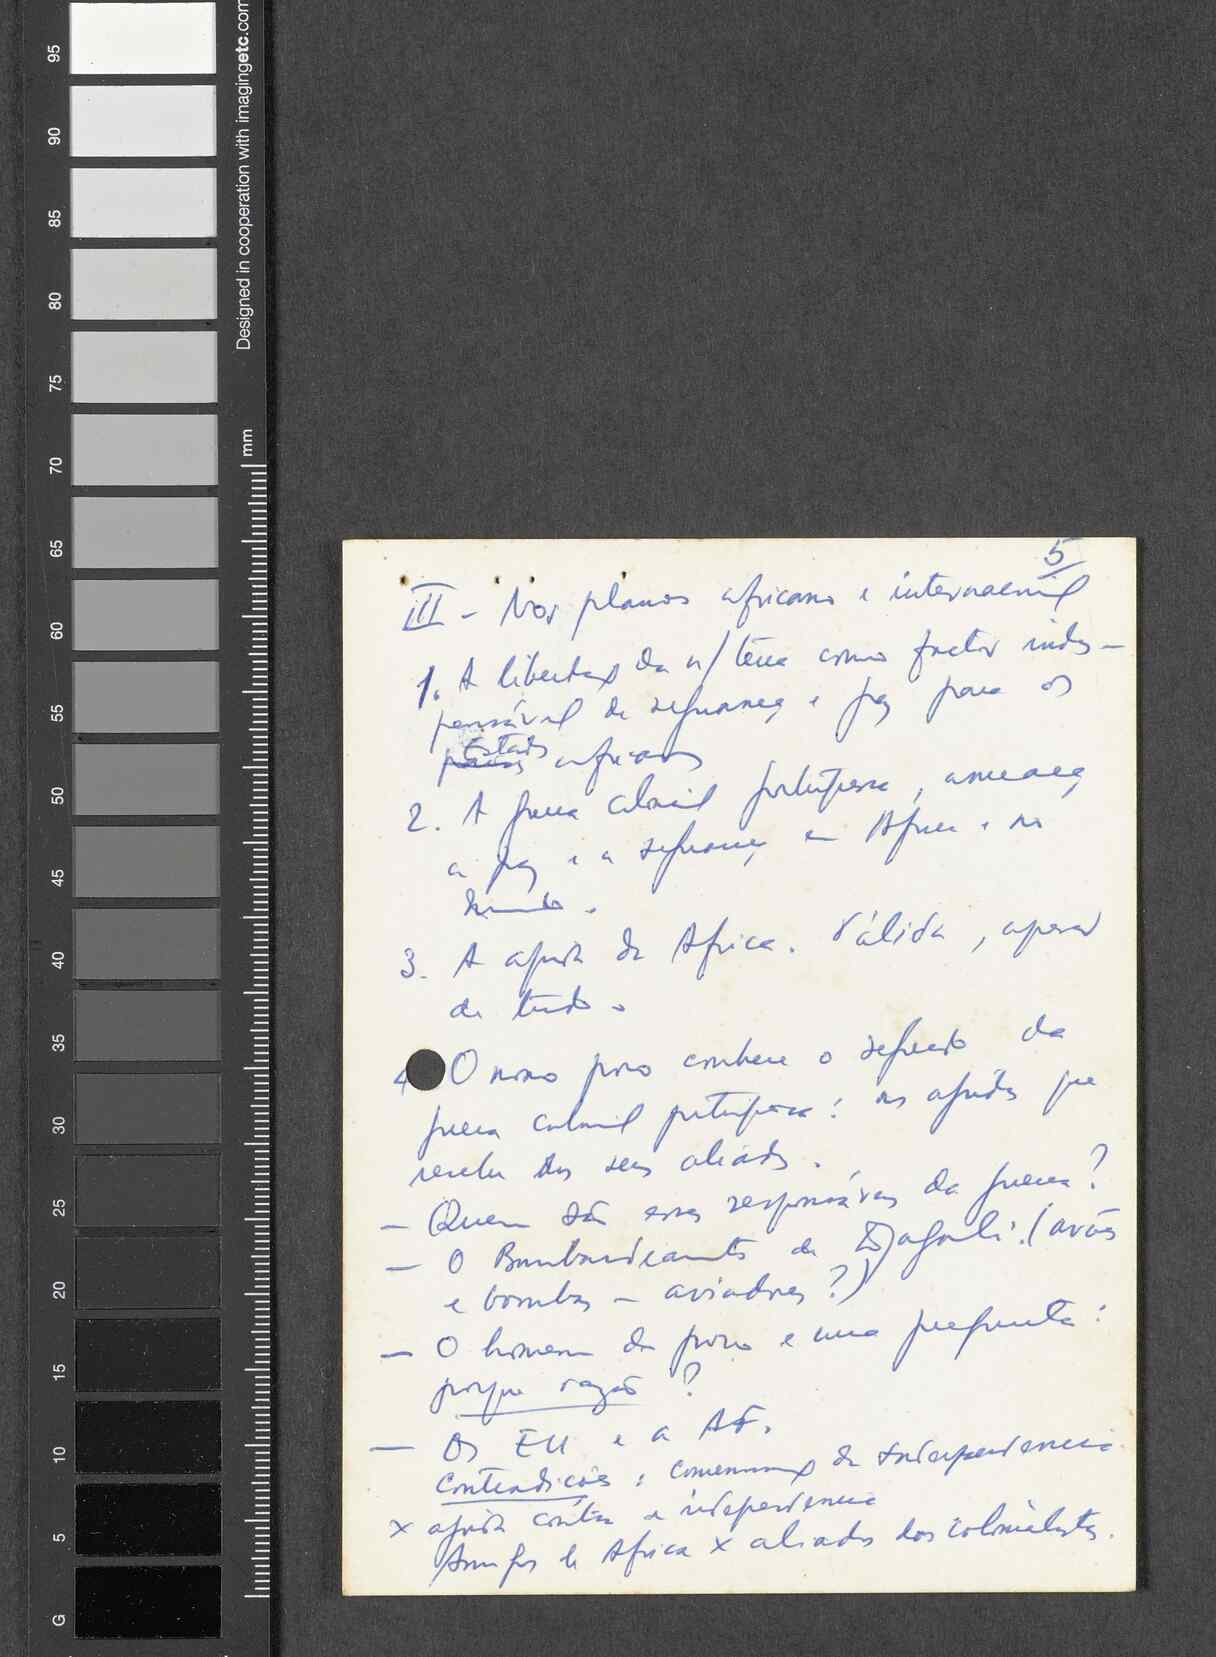 95
90
85
80
75
70
65
60
55
50
45
40
35
30
25
20
15
10
5
G
Designed in cooperation with imagingetc.com
mm
5
III - Nos planos africano e internacional
1. A libertaç. da n/ terra como factor indis-
pensável de segurança e paz para os
países Estados africanos
2. A guerra colonial portuguesa, ameaça
a paz e a segurança em África e no
Mundo.
3. A ajuda da África. Válida, apesar
de tudo.
4. O nosso povo conhece o segredo da
guerra colonial portuguesa: as ajudas que
recebe dos seus aliados.
- Quem são esses responsáveis da guerra?
- O Bombardeamento de (aviões
e bombas - aviadores?)
- O homem do povo e uma pergunta:
porque razão?
- Os EU e a AF.
Contradições: de Independencia
x ajuda contra a independencia
Amigos de Africa x aliados dos colonialistas.